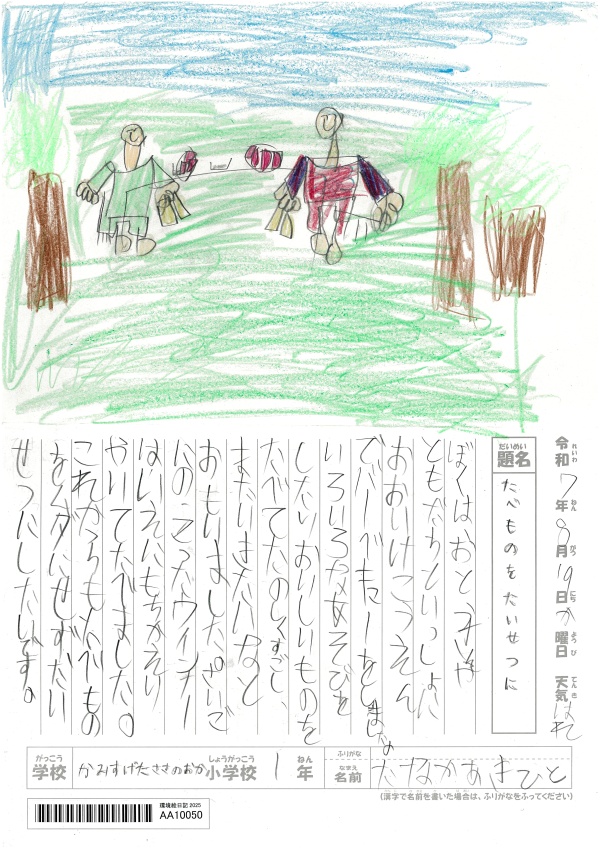 令和7年8月19日か曜日 天気はれ
れいわ ねん がつ にち ようび てんき
だいめい
題名 たべものをたいせつに
ぼくはおとうとや
ともだちといっしょに
おおいけこうえん
でバーベキューをしました
いろいろなあそびを
したりおいしいものを
たべてたのしくすごし、
またいきたいなと
おもいました。さいご
にのこったウインナー
はいえにもちかえり
やいてたべました。
これからもたべもの
をムダにせずたい
せつにしたいです。
がっこう しょうがっこう ねん ふりがな
学校 かみすげたささのおか小学校 1年
なまえ
名前 たなかあきひと
(漢字で名前を書いた場合は、ふりがなをふってください)
環境絵日記 2025
AA10050